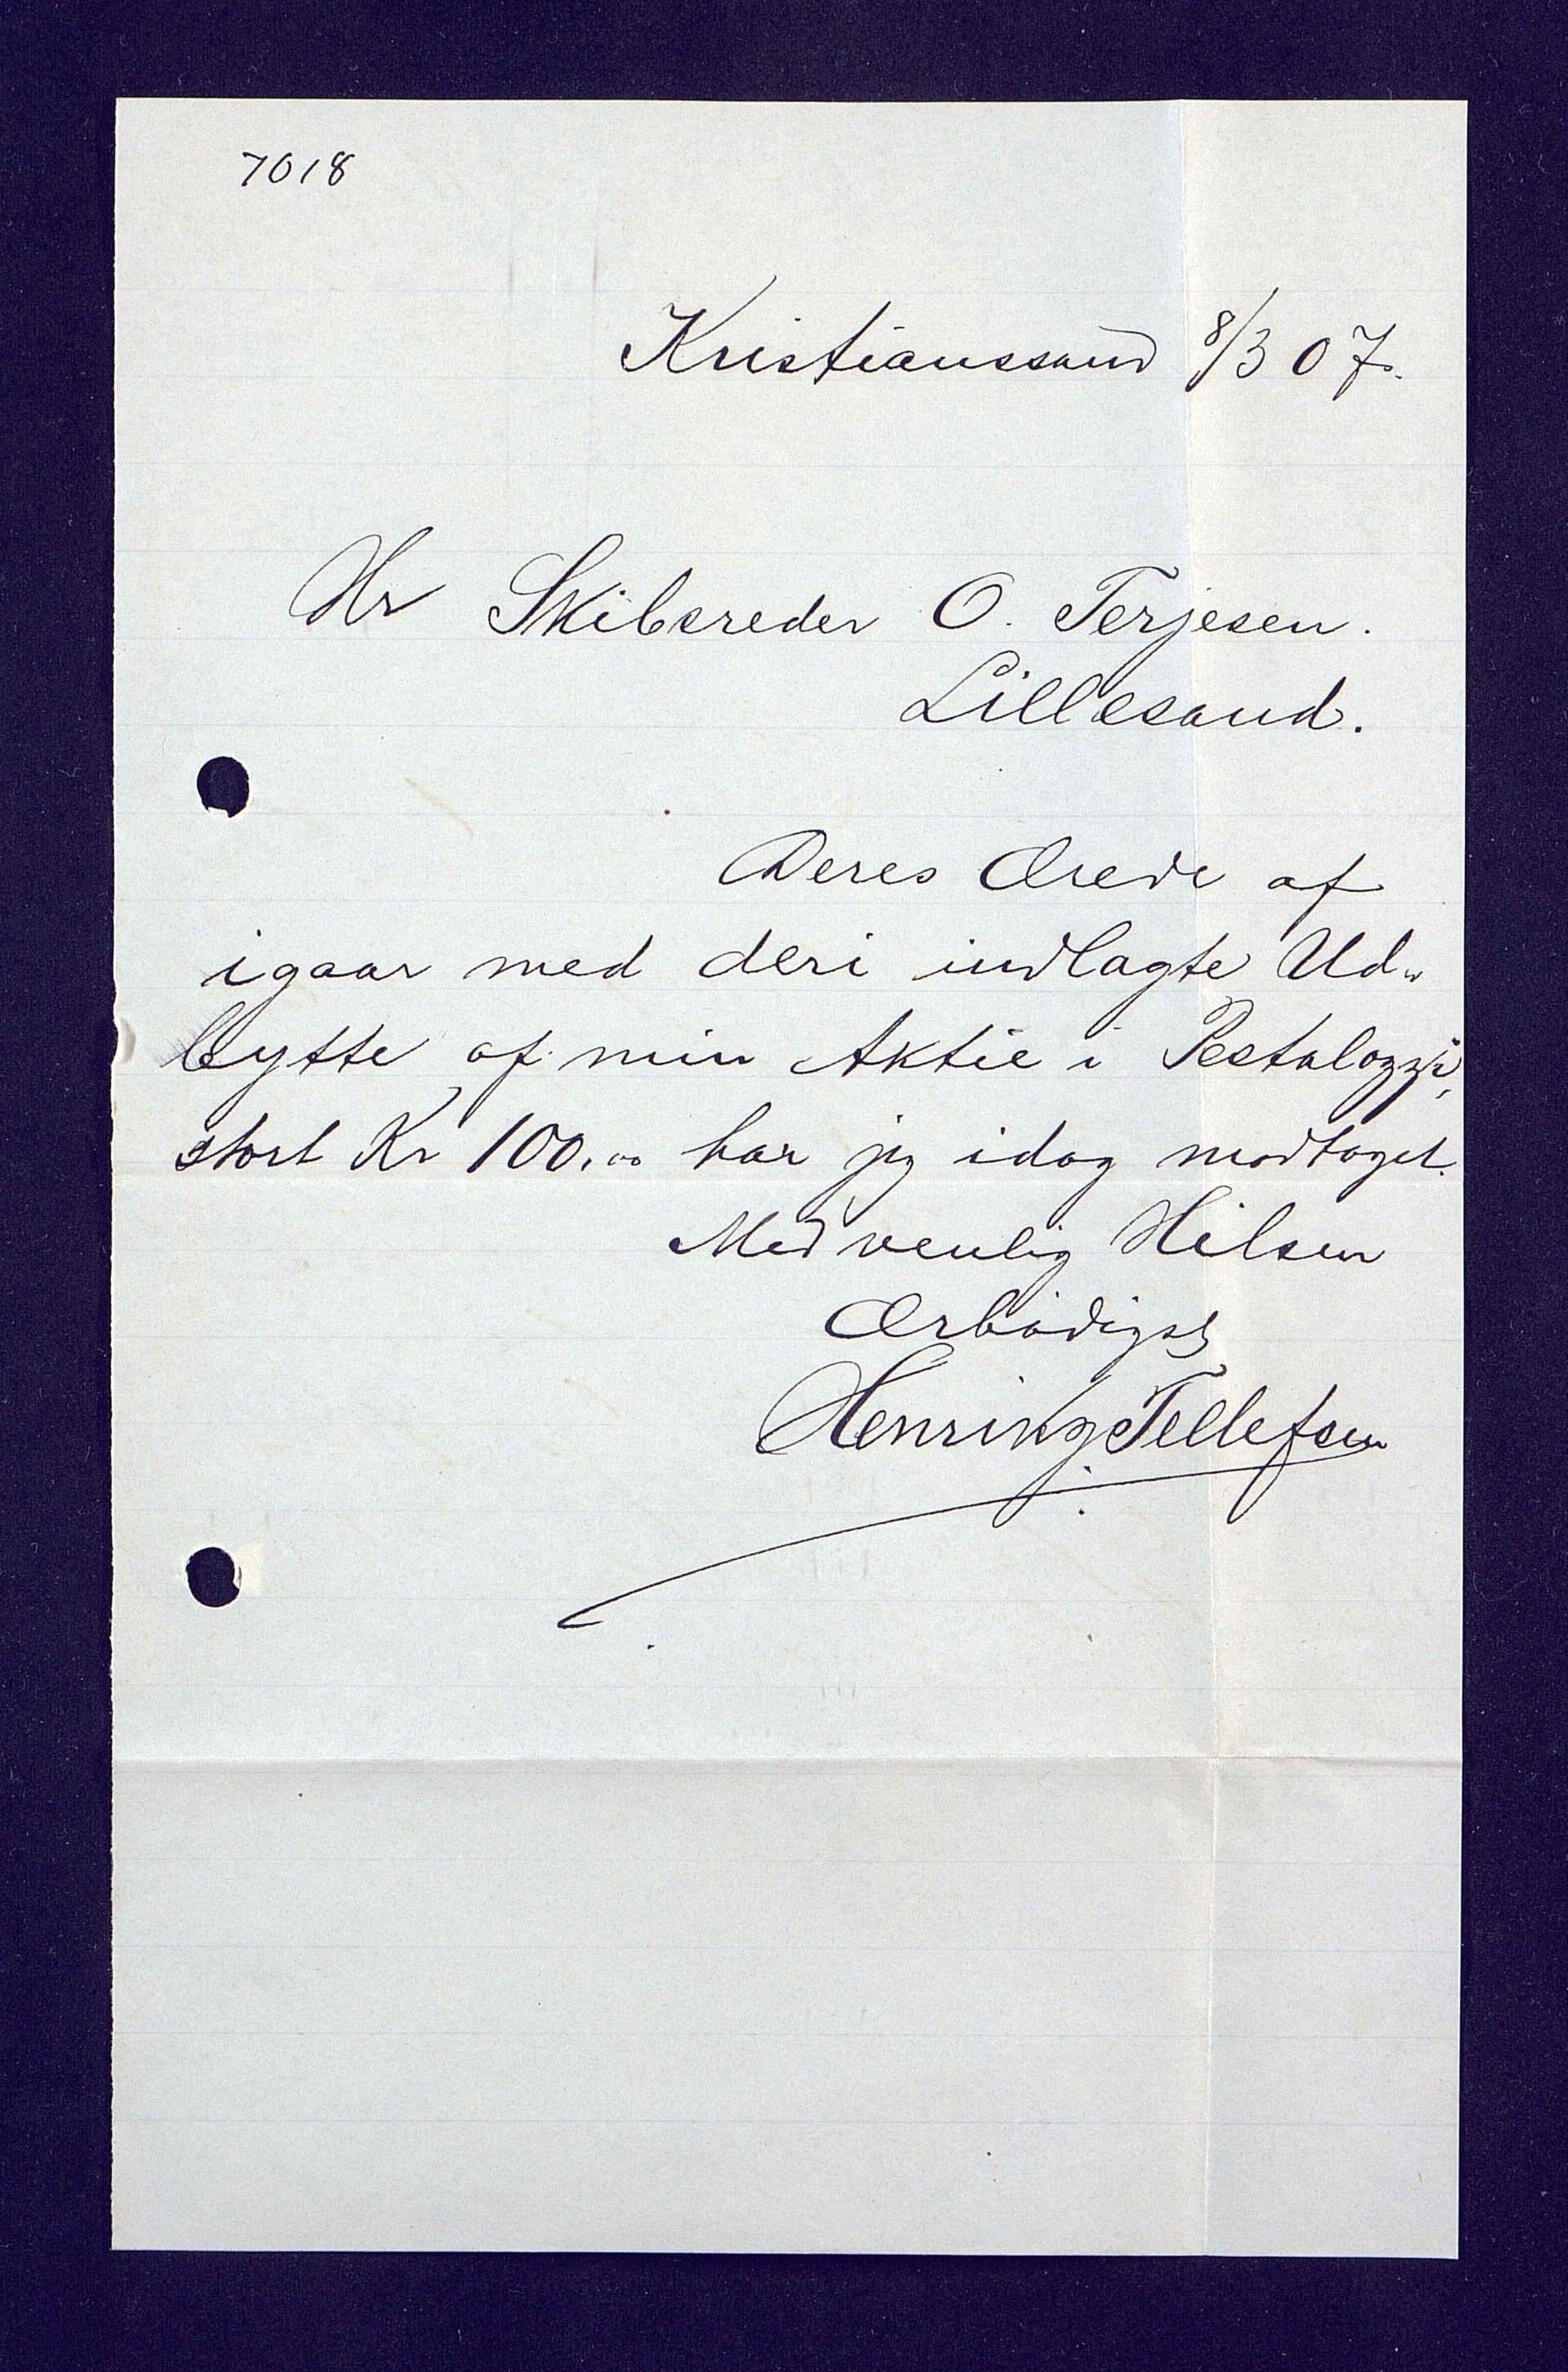 7018
Kristianssand 8/3 07.
Hr Skibsreder O. Terjesen.
Lillesand.
Deres Ærede af
igaar med deri indlagte Ud-
bytte af min Aktie i Pestalozzi,
stort Kr 100,00 har jeg idag modtaget.
Med venlig Hilsen
Ærbødigst
Henrik Tellefsen